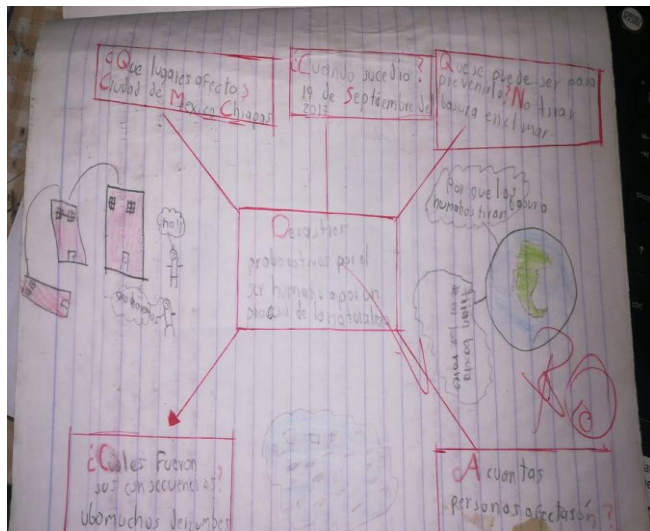 ¿Que lugares afecto?
Ciudad de Mexico Chiapas
¿Cuando sucedio?
19 de Septiembre de
2017
Que se puede ser para
prevenirlo? No tirar
basura en el mar
Por que los
humanos tiran
basura
Desastres
por el
ser humano o por un
de la naturaleza
tiran basura
¿Cuales Fueron
sus consecuencias?
Ubo muchos derrumbes
A cuantas
personas afectaron?